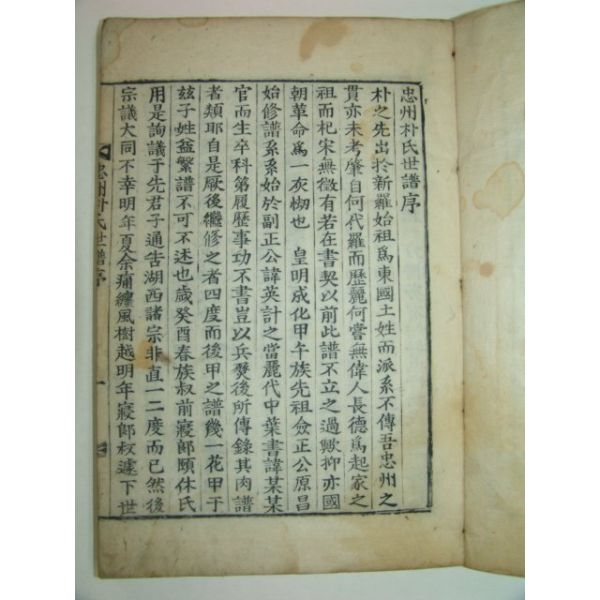 忠州朴氏世譜序
朴之先出於新羅始祖爲東國土姓而派系不傳吾忠州之
貫亦未考肇自何代羅而歷麗何嘗無偉人長德爲起家之
祖而杞宋無徵有若在書契以前此譜不立之過歟抑亦國
朝革命爲一灰刼也 皇明成化甲午族先祖僉正公原昌
始修譜系系始於副正公諱英計之當麗代中葉書諱某某
官而生卒科第履歷事功不書豈以兵燹後所傳錄其肉譜
者類耶自是厥後繼修之者四度而後甲之譜幾一花甲于
玆子姓益繁譜不可不述也歲癸酉春族叔前寢郎頤休氏
用是詢議于先君子通告湖西諸宗非直一二度而已然後
宗議大同不幸明年夏余痛纏風樹越明年寢郎叔遽下世
忠州朴氏世譜序
一